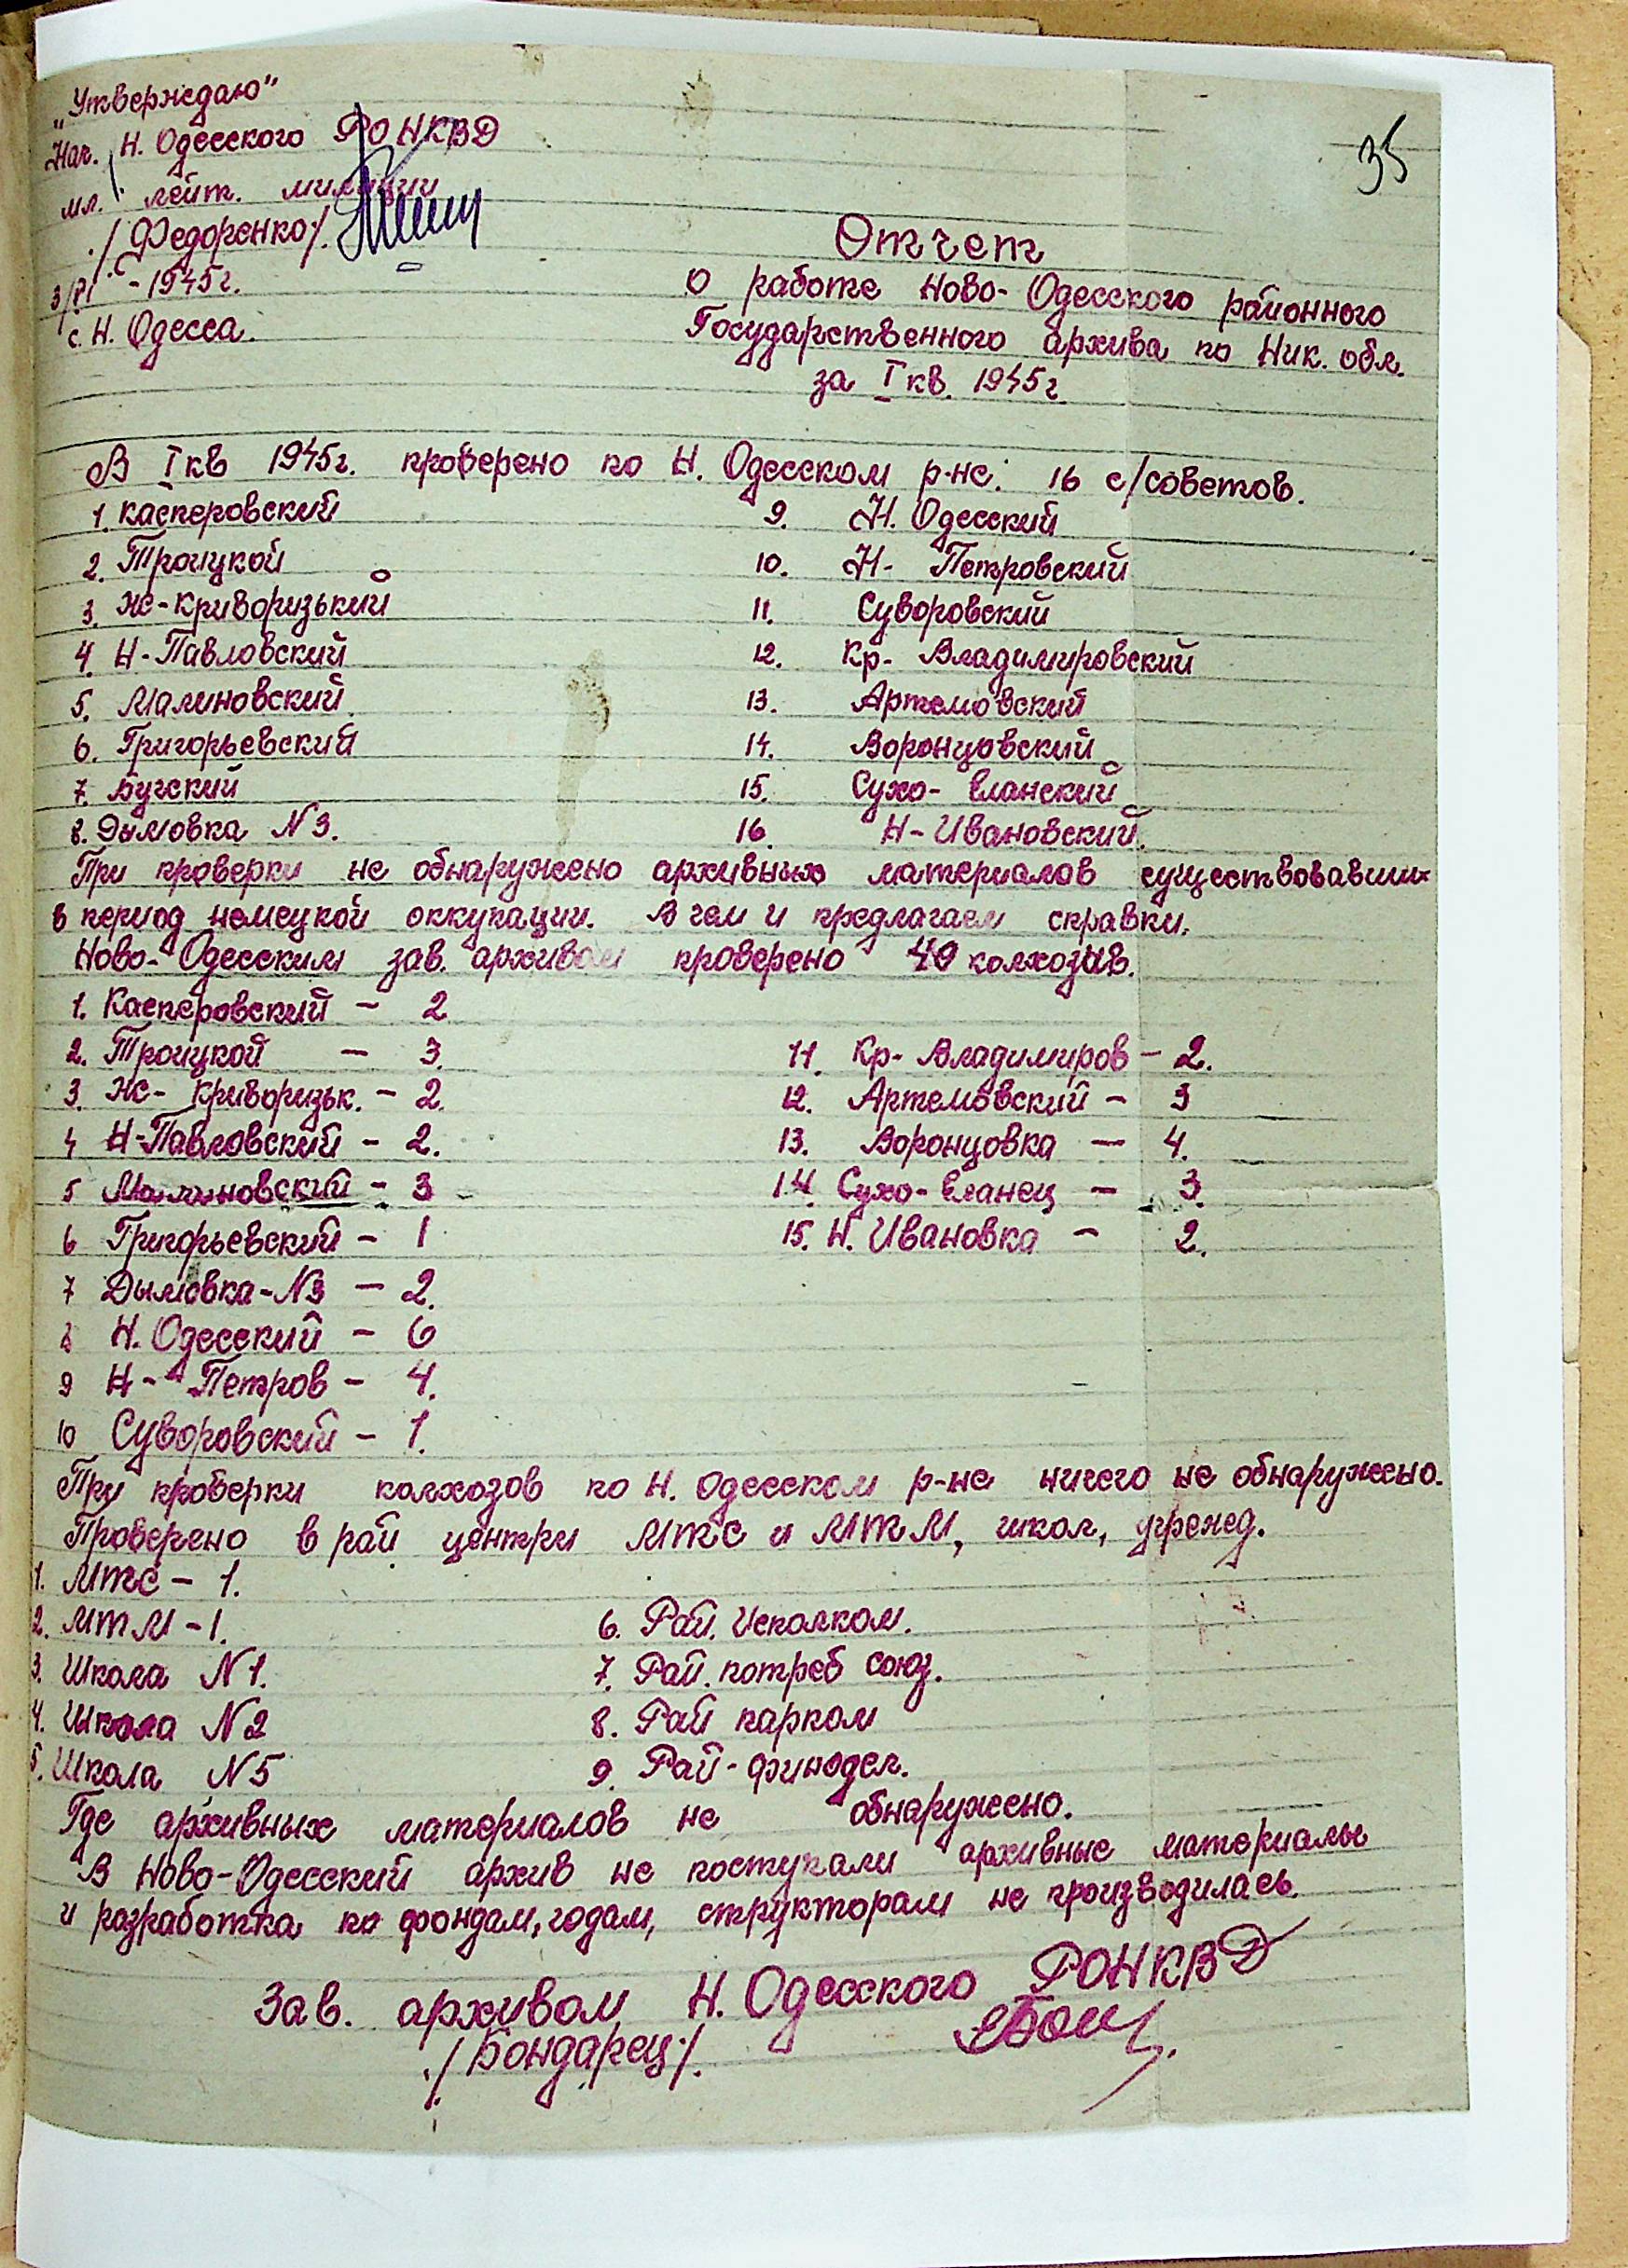 „Утверждаю"
Нач. Н. Одесского РО НКВД
мл. лейт. милиции
./Федоренко/.
- 1945г.
с. Н. Одесса.
35
Отчет
о работе Ново-Одесского районного
Государственного архива по Ник. обл.
за I кв. 1945г.
В I кв 1945г. проверено по Н. Одесском р-не: 16 с/советов.
1. Касперовский
2. Троицкой
3. Же-Криворизький
4. Н-Павловский
5. Малиновский
6. Григорьевский
7. Бугский
8. Дымовка N 3.
9. Н. Одесский
10. Н- Петровский
11. Суворовский
12. Кр- Владимировский
13. Артемовский
14. Воронцовский
15. Сухо- Еланский
16. Н- Ивановский.
При проверки не обнаружено архивных материалов существовавших
в период немецкой оккупации. В чем и предлагаем справки.
Ново-Одесским зав. архивом проверено 40 колхозив.
1. Касперовский - 2
2. Троицкой - 3.
3. Же- Криворизьк. - 2.
4 Н-Павловский - 2.
5 Малиновский - 3
6 Григорьевский - 1
7 Дымовка-N3 - 2.
8 Н. Одесский - 6
9 Н- Петров - 4.
10 Суворовский - 1.
11. Кр- Владимиров - 2.
12. Артемовский - 3
13. Воронцовка - 4.
14. Сухо- Еланец - 3.
15. Н. Ивановка - 2.
При проверки колхозов по Н. Одесском р-не ничего не обнаружено.
Проверено в рай центри МТС и МТМ, школ, учрежд.
1. МТС - 1.
2. МТМ - 1.
3. Школа N 1.
4. Школа N 2
5. Школа N 5
6. Рай. Исполком.
7. Рай. потреб союз.
8. Рай парком
9. Рай-финодел.
Где архивных материалов не обнаружено.
В Ново-Одесский архив не поступали архивные материалы
и разработка по фондам, годам, структорам не производилась.
Зав. архивом Н. Одесского РОНКВД
./Бондарец/.